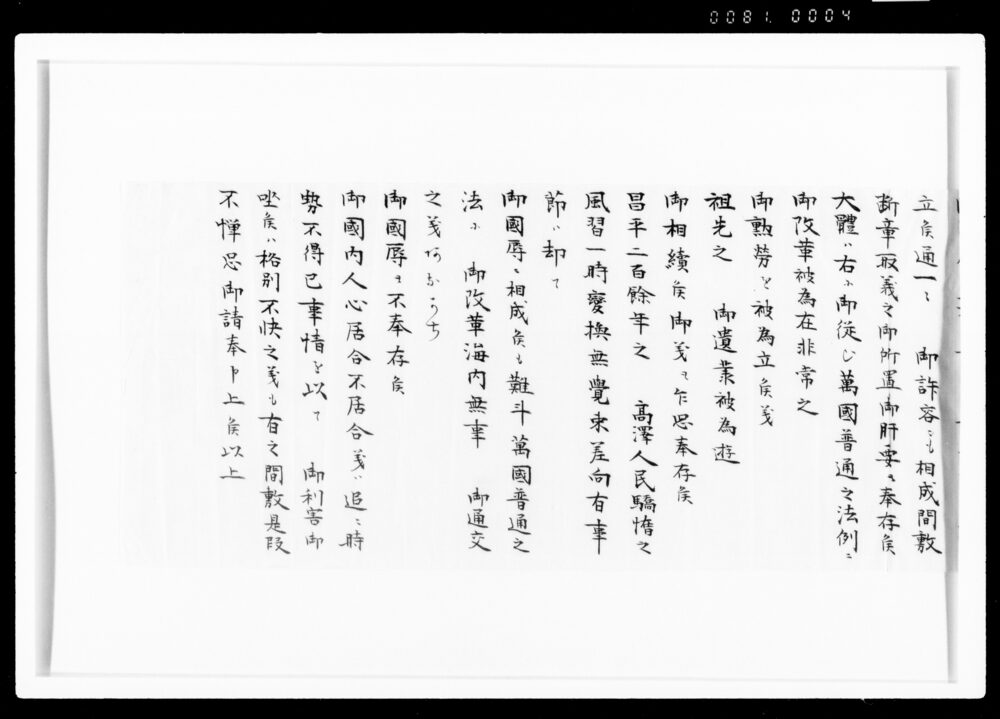 0081.0004
立候通ニ而 御許容ニも相成間敷
断章取義之御所置御肝要ニ奉存候
大體ハ右ニ御従ひ萬國普通之法例ニ
御改革被為在非常之
御勲労を被為立候義
祖先之 御遺業被為遊
御相續候御義ニ乍恐奉存候
昌平二百餘年之 高澤人民驕惰之
風習一時變換無覺束差向有事
節ハ却て
御國辱ニ相成候も難斗萬國普通之
法ニ 御改革海内無事 御通交
之義あなかち
御國辱とハ不奉存候
御國内人心居合不居合義ハ追々時
勢不得已事情を以て 御利害御
坐候ハ格別不快之義も有之間敷是段
不憚恐御請奉申上候以上